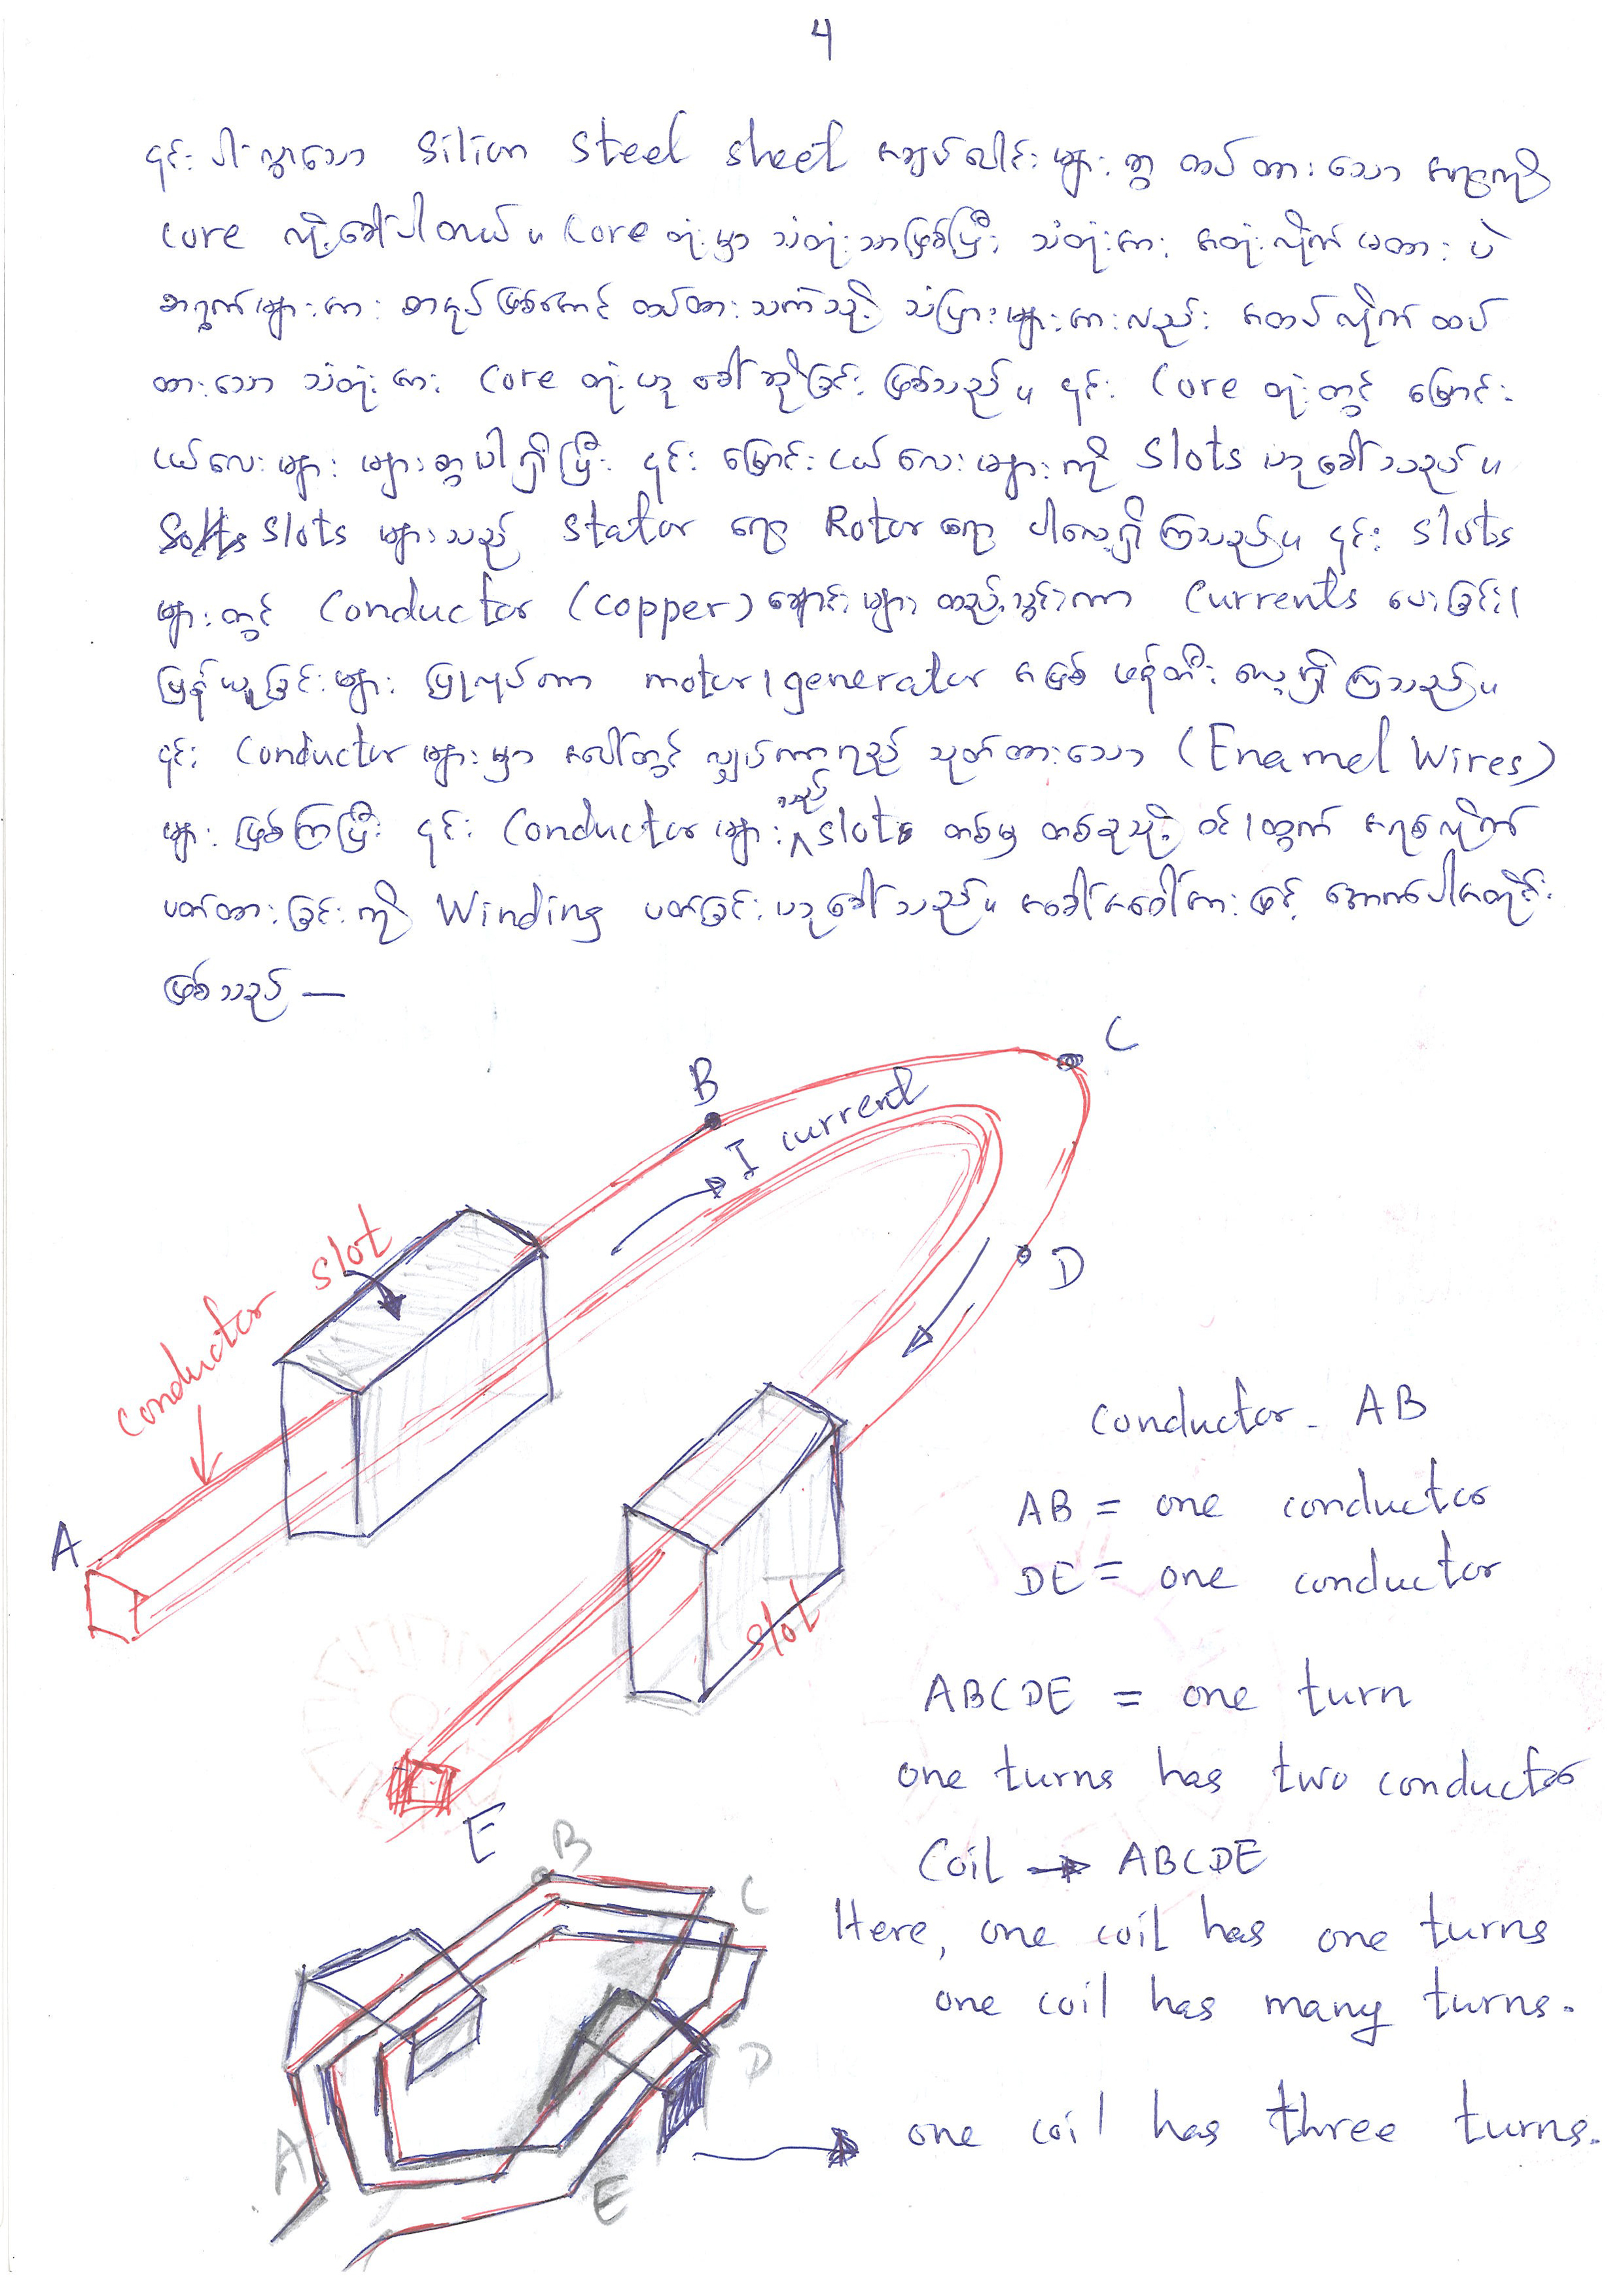 4
၎င်း ပါးလွှာသော Silicon Steel sheet အချပ်ပေါင်းများစွာ ထပ်ထားသော အရာကို
Core လို့ခေါ်ပါတယ်။ Core တုံးမှာ သံတုံးသာဖြစ်ပြီး သံတုံးကား အတုံးလိုက်မဟုတ်ပဲ
စာရွက်များကား စာအုပ်ဖြစ်အောင် ထပ်ထားသကဲ့သို့ သံပြားများကလည်း အထပ်လိုက် ထပ်
ထားသော သံတုံးကား Core တုံးဟု ခေါ်ဆိုခြင်း ဖြစ်သည်။ ၎င်း Core တုံးတွင် မြောင်း
ငယ်လေးများ များစွာပါရှိပြီး ၎င်း မြောင်းငယ်လေးများကို Slots ဟုခေါ်သည်။
Slots များသည် Stator ရော Rotor ရော ပါလေ့ရှိကြသည်။ ၎င်း Slots
များတွင် Conductor (Copper) ချောင်းများ ထည့်သွင်းကာ Currents ပေးခြင်း၊
ပြန်ယူခြင်းများ ပြုလုပ်ကာ motor၊ generator အဖြစ် ဖန်တီးလေ့ရှိကြသည်။
၎င်း Conductor များမှာ အပေါ်တွင် လျှပ်ကာရည် သုတ်ထားသော (Enamel Wires)
များ ဖြစ်ကြပြီး ၎င်း Conductor များသည် slots တစ်ခုမှ တစ်ခုသို့ ဝင်၊ထွက် အရစ်လိုက်
ပတ်ထားခြင်းကို Winding ပတ်ခြင်းဟုခေါ်သည်။ အခေါ်အဝေါ်အားဖြင့် အောက်ပါအတိုင်း
ဖြစ်သည် —
C
B
I current
slot
conductor
D
A
slot
E
Conductor - AB
AB = one conductor
DE = one conductor
ABCDE = one turn
one turns has two conductor
Coil → ABCDE
Here, one coil has one turns
one coil has many turns.
B
C
D
A
E
→ one coil has three turns.